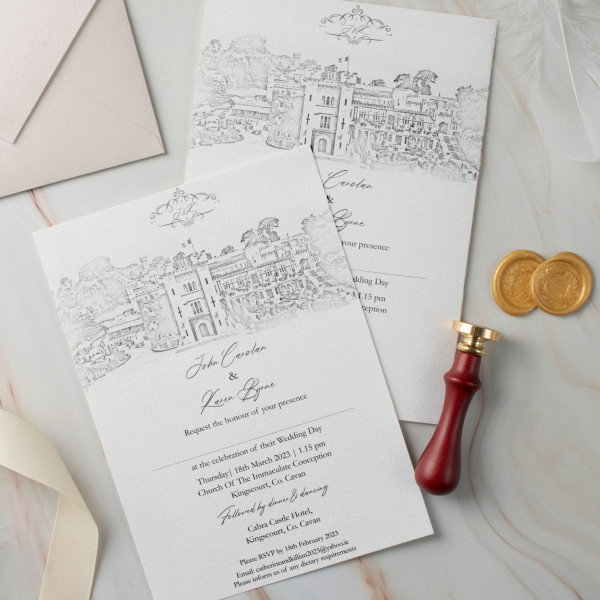 Carolan
&
Byrne
your presence
Wedding Day
1.15 pm
John Carolan
&
Karen Byrne
Request the honour of your presence
at the celebration of their Wedding Day
Thursday| 18th March 2023 | 1.15 pm
Church Of The Immaculate Conception
Kingscourt, Co. Cavan
Followed by dinner & dancing
Cabra Castle Hotel,
Kingscourt, Co. Cavan
Please RSVP by 18th February 2023
Email: catherineandkillian2023@yahoo.ie
Please inform us of any dietary requirements